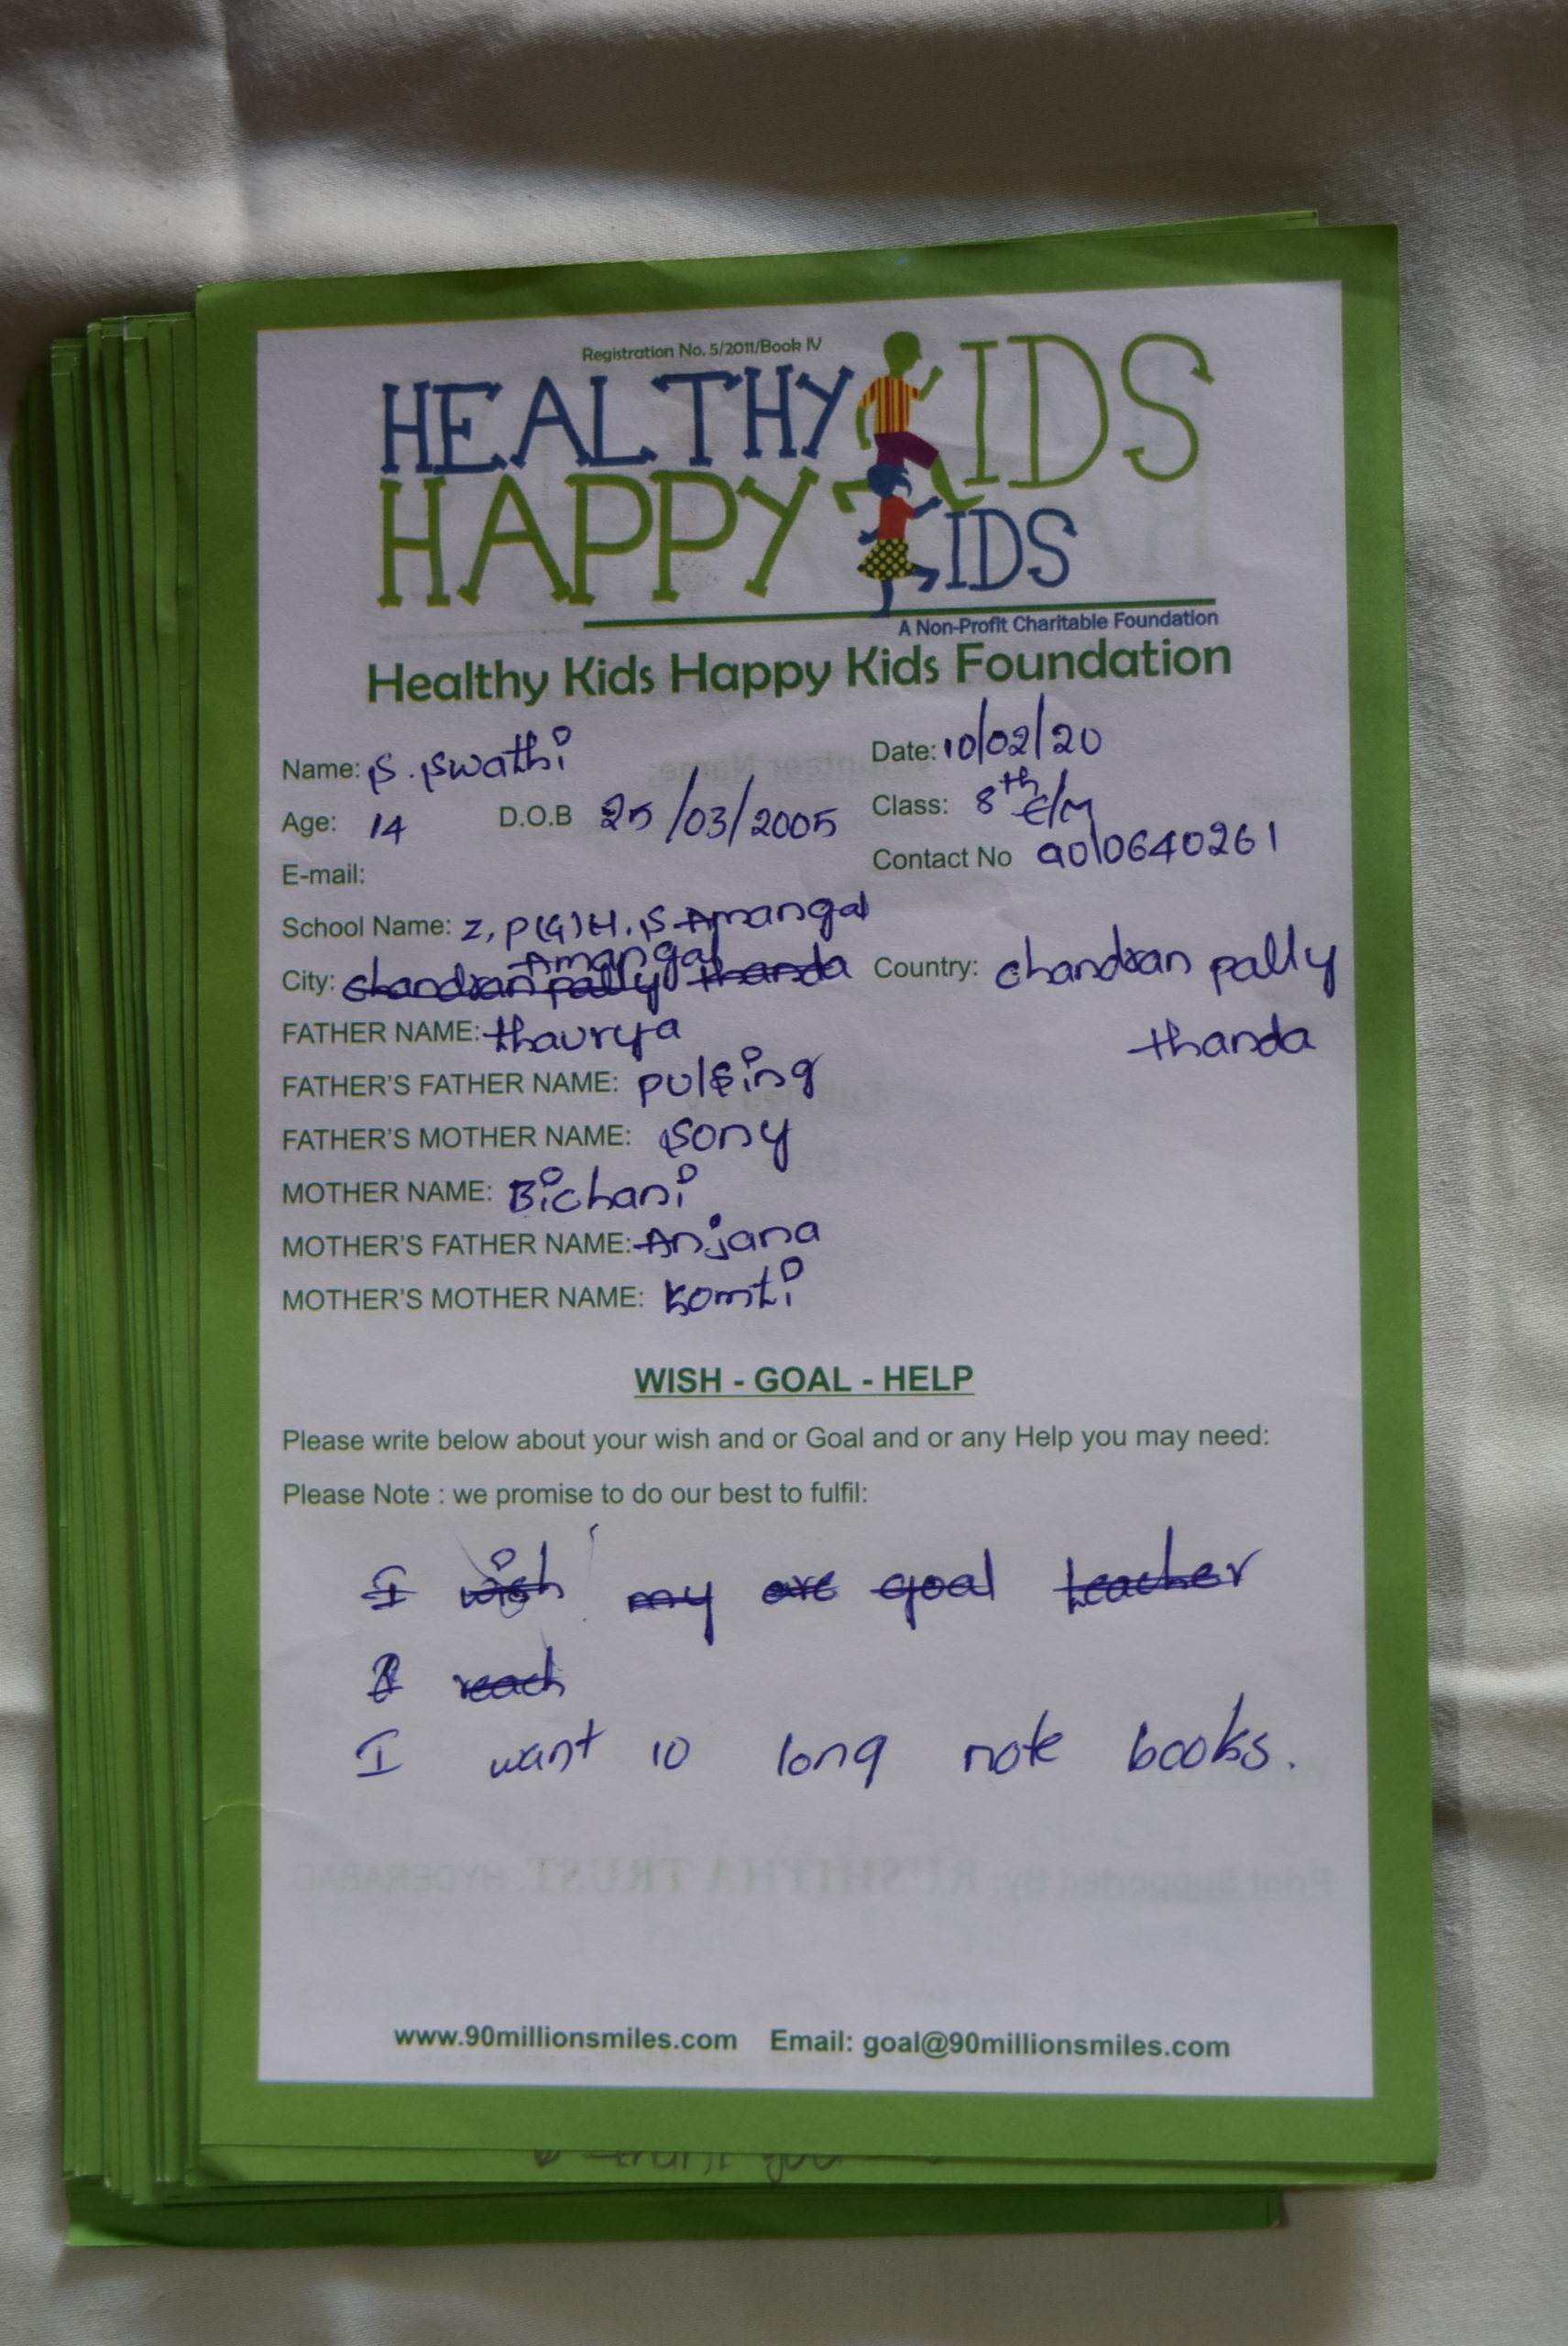 Registration No. 5/2011/Book IV
HEALTHY KIDS
HAPPY KIDS
A Non-Profit Charitable Foundation
Healthy Kids Happy Kids Foundation
Name: S. Swathi Date: 10/02/20
Age: 14 D.O.B 25/03/2005 Class: 8th E/M
E-mail: Contact No 9010640261
School Name: Z, P(G)H.S Amangal
Amangal
City: chandran pally thanda Country: chandran pally
thanda
FATHER NAME: thaurya
FATHER'S FATHER NAME: pulsing
FATHER'S MOTHER NAME: Sony
MOTHER NAME: Bichani
MOTHER'S FATHER NAME: Anjana
MOTHER'S MOTHER NAME: komti
WISH - GOAL - HELP
Please write below about your wish and or Goal and or any Help you may need:
Please Note : we promise to do our best to fulfil:
I wish my are goal teacher
I reach
I want 10 long note books.
Print Supported By: RUSHITHA TRUST, HYDERABAD.
www.90millionsmiles.com Email: goal@90millionsmiles.com